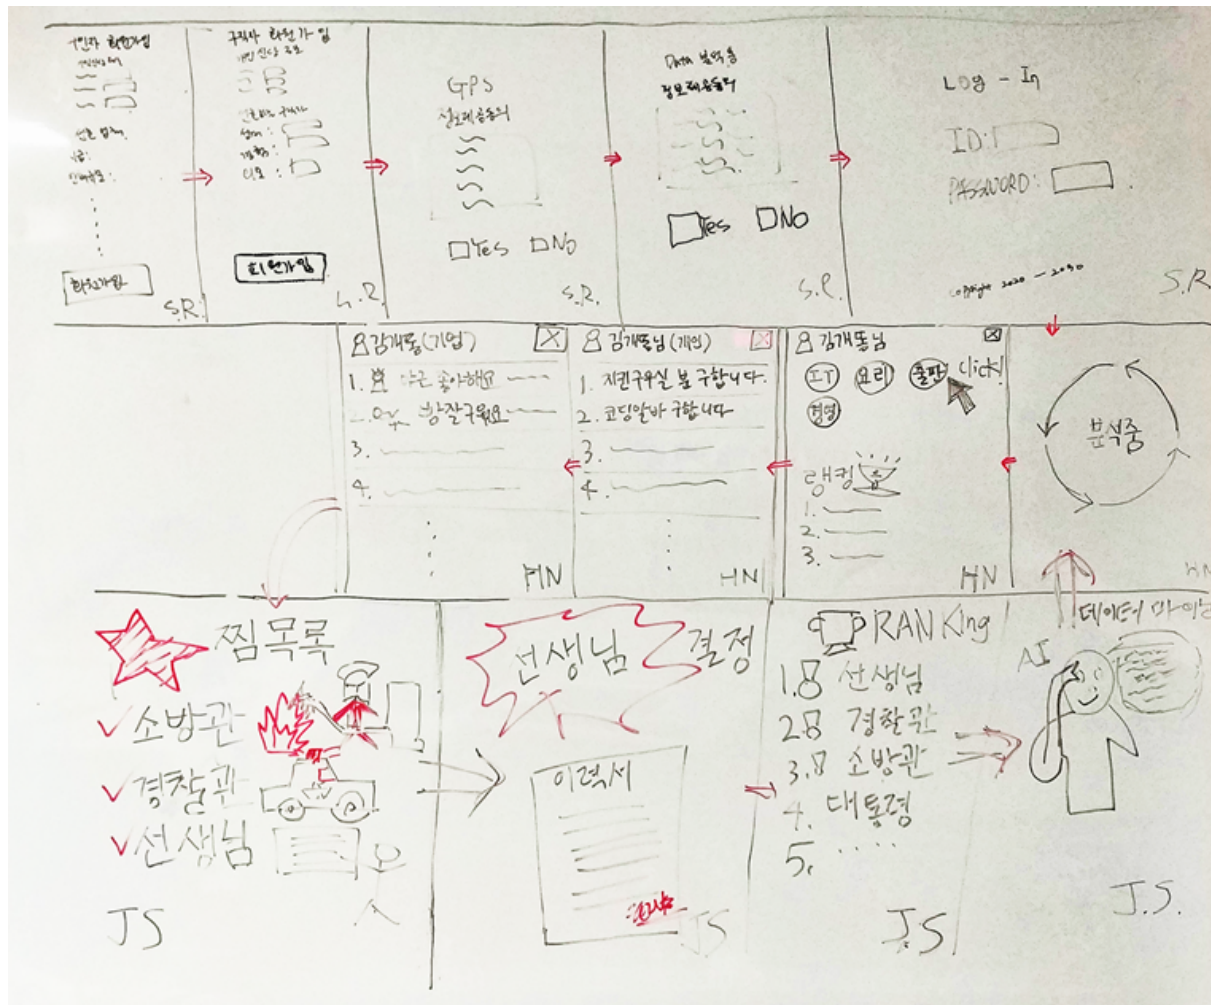 구인자 회원가입
회원가입
S.R.
구직자 회원가입
회원가입
S.R.
GPS
정보제공동의
Yes No
S.R.
Data 분석용
정보제공동의
Yes No
S.R.
Log - In
ID:
PASSWORD:
copyright 2020 - 2030
S.R
김개똥(기업)
1. 야근 좋아해요
2. 빵 잘구워요
3.
4.
HN
김개똥님(개인)
1. 치킨구우실 분 구합니다.
2. 코딩알바 구합니다
3.
4.
HN
김개똥님
IT 요리 출판 click!
경영
랭킹
1.
2.
3.
HN
분석중
HN
찜목록
소방관
경찰관
선생님
JS
선생님 결정
이력서
JS
RANKing
1. 선생님
2. 경찰관
3. 소방관
4. 대통령
5. .....
J.S
데이터 마이닝
AI
J.S.